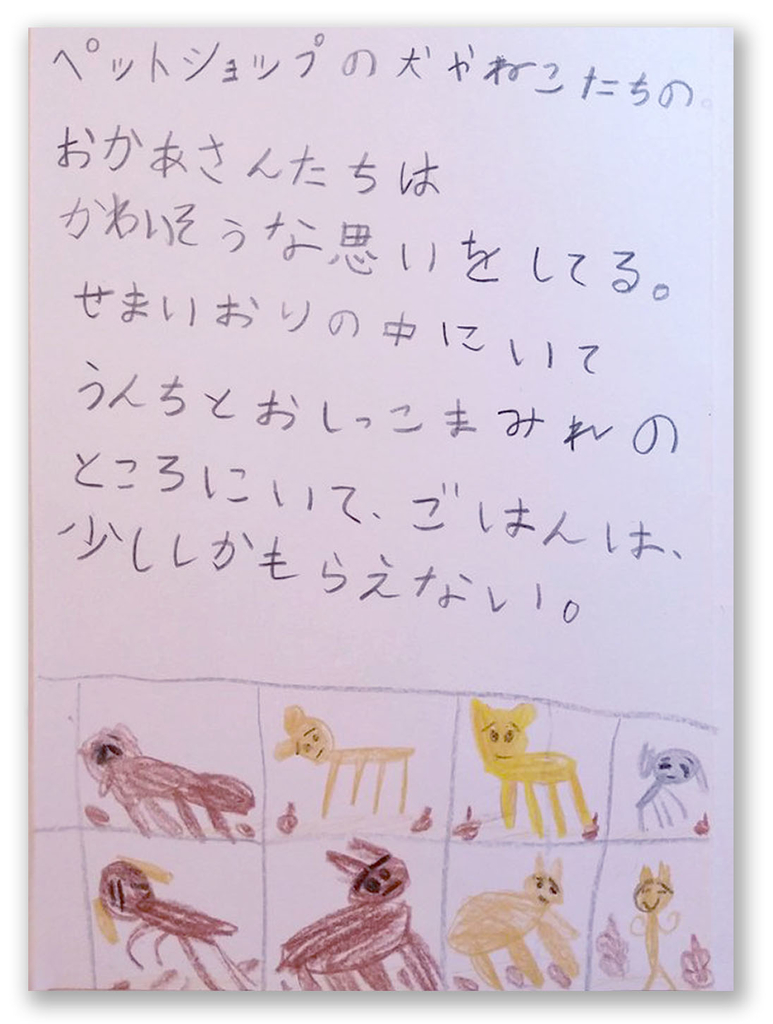 ペットショップの犬やねこたちの。
おかあさんたちは
かわいそうな思いをしてる。
せまいおりの中にいて
うんちとおしっこまみれの
ところにいて、ごはんは、
少ししかもらえない。